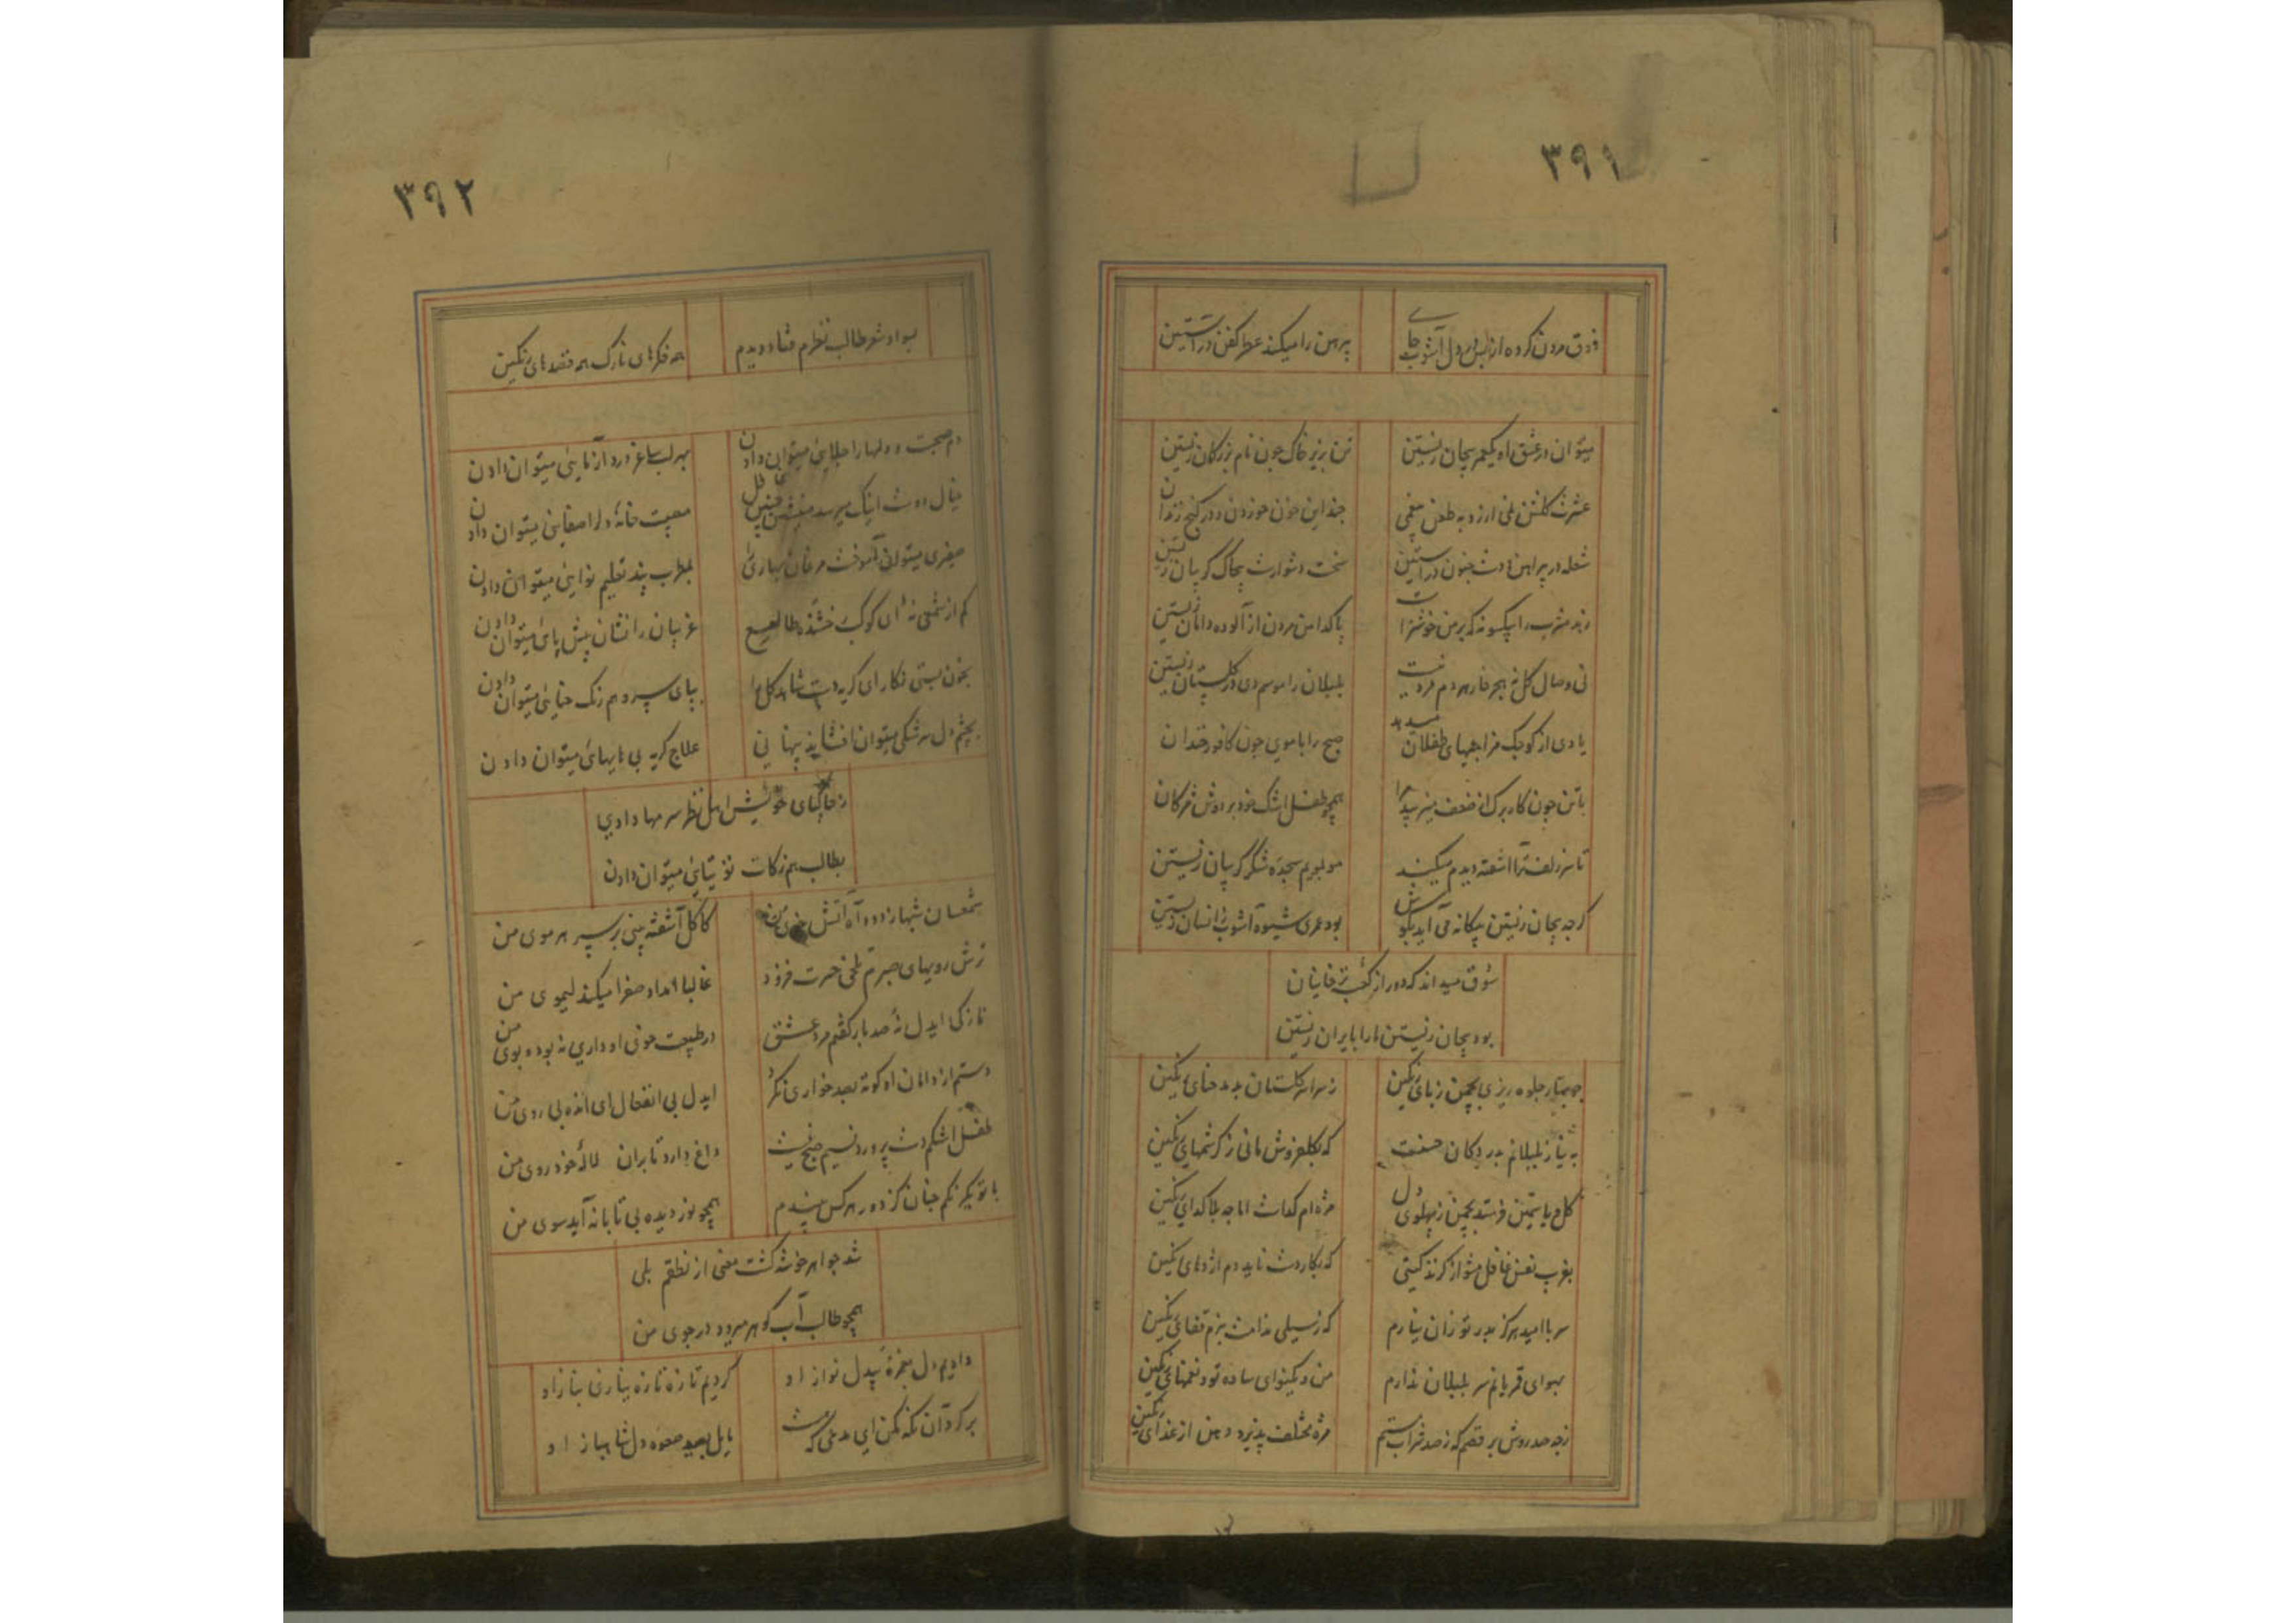 ۳۹۱
ذوق مردن کرده از بس در دل آشوب جای
پیرهن را میکند عطر کفن در آستین
میتوان در عشق او یکعمر بیجان زیستن
تن بزیر خاک چون نام بزرکان زیستن
عشرت کلشن نمی ارزد به طعن
چند این خون خوردن و در کنج زندان
شعله در پیراهن و دشت جنون در آستین
سخت دشوارست بچاک کریبان زیستن
رند مشرب را یکسو نه که بر من خوشترست
پاکدامن مردن از آلوده دامان زیستن
نی وصال کل نه هجر خار هر دم
بلبلان را موسم دی در کلستان زیستن
یادی از کوچک مزاجیهای طفلان میدهد
صبح را با موی چون کافور خندان
با تن چون کاه برک از ضعف
همچو طفل اشک خود بر دوش مژکان
تا سر زلف ترا آشفته دیدم میکند
مو بمویم سجده شکر کریبان زیستن
کرچه بیجان زیستن بیکانه می آید بکوش
بود عمری شیوه آشوب ز انسان زیستن
شوق میداند که دور از کعبه
بود بیجان زیستن ما را بایران زیستن
چو بهار جلوه ریزی بچمن ز پای رنکین
ز سراسر کلستان بدمد حنای رنکین
به نیاز بلبلانم بدر دکان حسنت
که بکلفروش مانی ز کرشمهای رنکین
کل و یاسمین فرستد بچمن ز پهلوی دل
مژه ام کداست اما چه بلا کدای رنکین
بفریب نفس غافل مشو از کزند کیتی
که بکار دست ناید دم اژدهای رنکین
سر با امید هرکز بدر تو زان نیارم
که ز سیلی ندامت بزم قفای رنکین
بهوای قمریانم سر بلبلان ندارم
من و یکنوای ساده تو و نغمهای رنکین
ز چه صد روش برقصم که ز صد شراب مستم
مژه مختلف پذیرد دهن از غذای رنکین
۳۹۲
بسواد شعر طالب نظرم فتاد و دیدم
همه فکرهای نازک همه فقرهای رنکین
دم صحبت و دلها را جلایی میتوان دادن
بهر لب ساغر درد آزمایی میتوان دادن
خیال دوست اینک میرسد منشین چنین غافل
مصیبت خانه دل را صفایی میتوان دادن
صفیری میتوان آموخت مرغان بهاری
بمطرب پند تعلیم نوایی میتوان دادن
کم از شمعی نه ای کوکب رخشنده طالع
غریبان را نشان پیش پایی میتوان دادن
بخون بستی نکار ای کریه دست شاهد کل را
بپای سرو هم رنک حنایی میتوان دادن
بچشم دل سرشکی میتوان افشاند پنهانی
علاج کریه بی هایهایی میتوان دادن
ز خاکپای خویش اهل نظر سرمها دادی
بطالب هم زکات توتیایی میتوان دادن
شمعسان شبها ز دود آه آتش خوی من
کاکل آشفته بینی بر سر هر موی من
ترش روییهای صبرم تلخی حسرت فزود
غالبا امداد صفرا میکند لیموی من
نازکی ایدل نه صد بار کفتم مرد عشق
در طبیعت خوی او داری نه بوده بوی من
دستم از دامان او کوته بصد خواری نکرد
ایدل بی انفعال ای دیده بی روی من
طفل اشکم دست پرورد نسیم صبح نیست
داغ دارد تا بر آن لاله خودروی من
با تو یکرنکم چنان کز دور هر کس بیندم
همچو نور دیده بی تابانه آید سوی من
شد جواهر خوشه کشت معنی از نطقم بلی
همچو طالب آب کوهر میرود در جوی من
دادیم دل بغمزه بیدل نواز او
کردیم تازه تازه نیازی بناز او
بر کرد آن نکه نکن ای مدعی که هست
مایل بصید صعوه دل شاهباز او